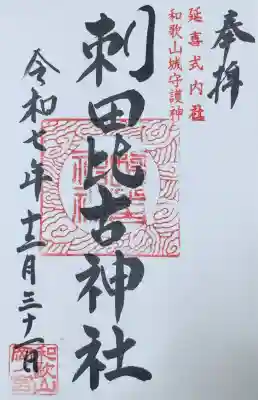 奉拝
延喜式内社
和歌山城守護神
刺田比古神社
令和七年十二月三十一日